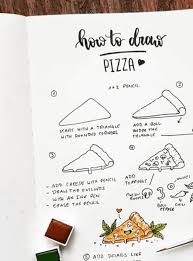 how to draw
PIZZA
1+2 PENCIL
1
2
STARTS WITH A TRIANGLE
WITH ROUNDED CORNERS
ADD A ROLL
UNDER THE
TRIANGLE
3
4
ADD CHEESE WITH PENCIL
DRAW THE OUTLINES
WITH AN INK PEN
ERASE THE PENCIL
ADD
TOPPINGS
5
ADD DETAILS LIKE